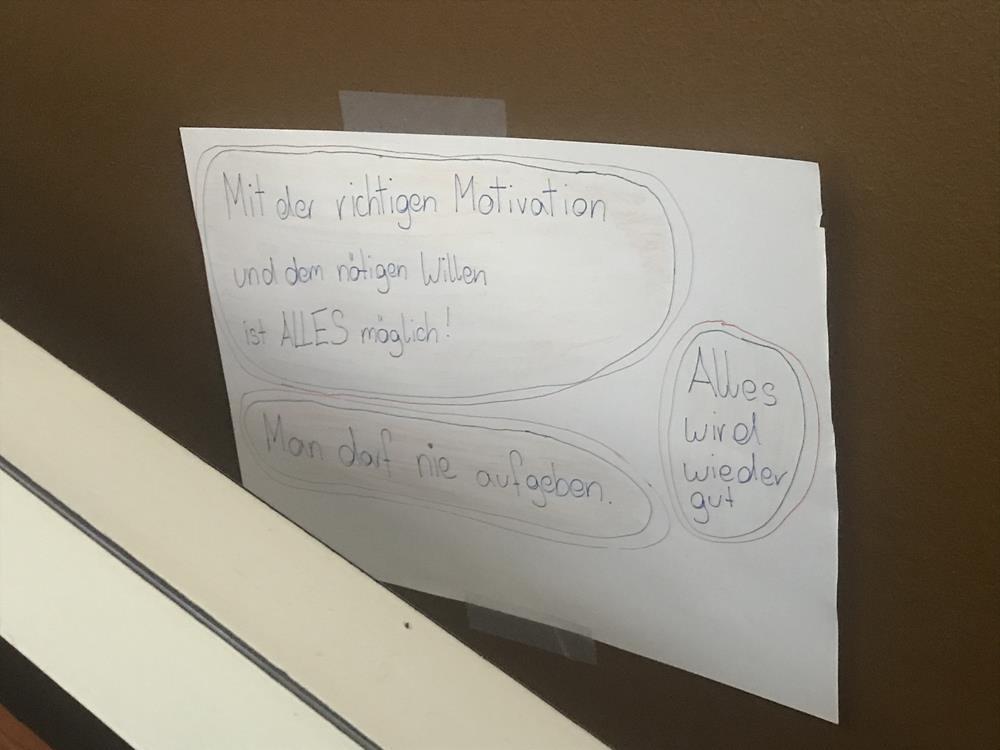 Mit der richtigen Motivation
und dem nötigen Willen
ist ALLES möglich!
Man darf nie aufgeben.
Alles
wird
wieder
gut